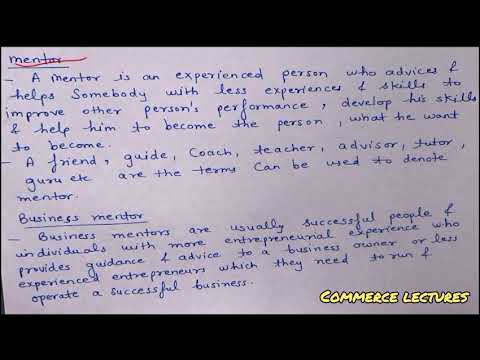 Mentor
- A Mentor is an experienced person who advices &
helps Somebody with less experiences & skills to
improve other person's performance, develop his skills
& help him to become the person, what he want
to become.
- A friend, guide, Coach, teacher, advisor, tutor,
guru etc are the terms Can be used to denote
mentor.
Business mentor
- Business mentors are usually successful people &
individuals with more entrepreneurial experience who
provides guidance & advice to a business owner or less
experienced entrepreneurs which they need to run &
operate a successful business.
COMMERCE LECTURES